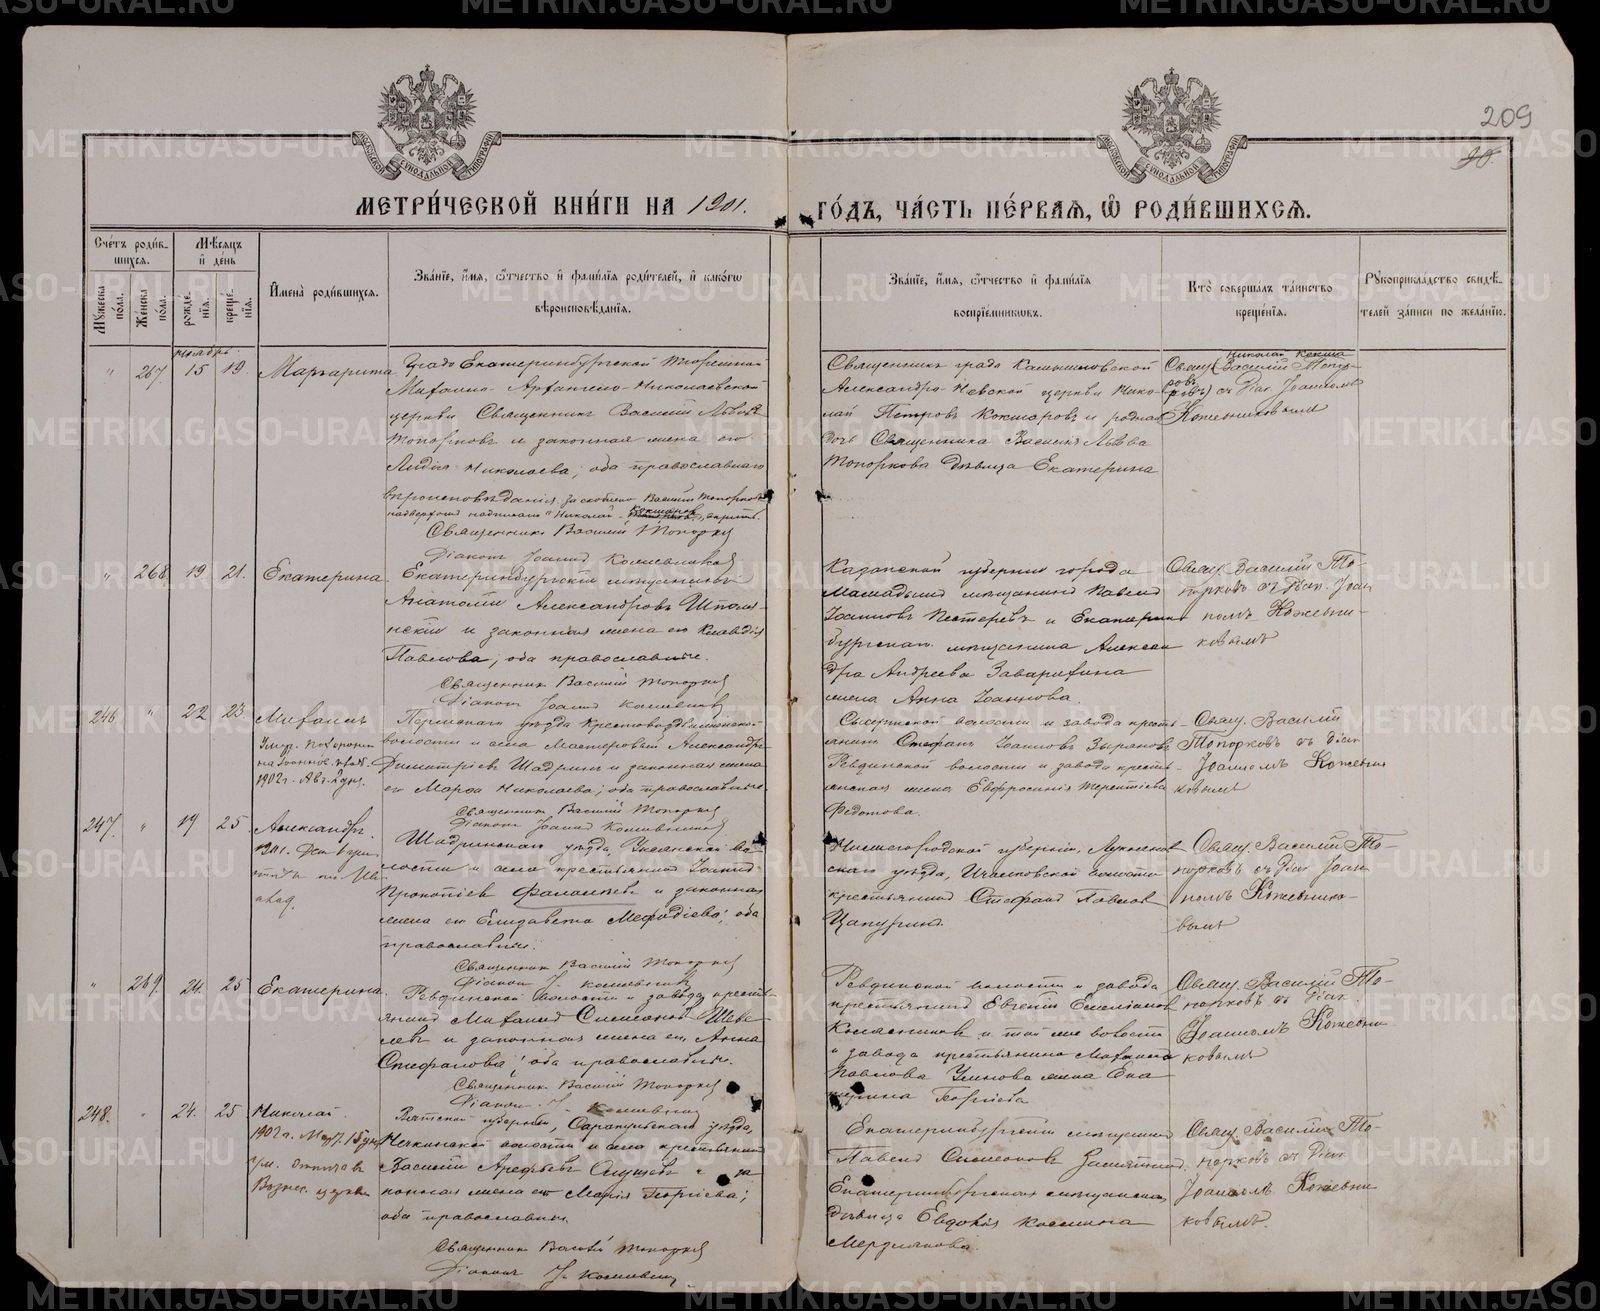 209
МЕТРИ́ЧЕСКОЙ КНИ́ГИ НА 1901.
ГО́ДЪ, ЧА́СТЬ ПЕ́РВАЯ, Ѡ҆ РОДИ́ВШИХСЯ.
Сче́тъ роди́в-
шихся.
Мꙋ́жеска по́ла.
Же́нска по́ла.
Мѣ́сяцъ и҆ де́нь
рожде́-
нїя.
креще́-
нїя.
И҆мена̀ роди́вшихся.
Зва́нїе, и҆́мя, ѻ҆́тчество и҆ фами́лїя роди́телей, и҆ како́гѡ
вѣроисповѣ́данїя.
Зва́нїе, и҆́мя, ѻ҆́тчество и҆ фами́лїя
воспрїе́мниковъ.
Кто̀ соверша́лъ та́инство
креще́нїя.
Рꙋкоприкла́дство свидѣ́-
телей за́писи по жела́нїю.
Ноябрь
" 267. 15 19. Маргарита
Градо Екатеринбургской Тюремной
Михаило-Архангело-Николаевской
церкви Священникъ Василий Львовъ
Топорковъ и законная жена его
Лидия Николаева; оба православнаго
вѣроисповѣданія.
Священникъ Василий Топорков
Діаконъ Іоаннъ Кожевников
Священникъ града Камышловской
Александро-Невской церкви Нико-
лай Петровъ Кокшаровъ и родная
дочь Священника Василия Львова
Топоркова дѣвица Екатерина
Николай Кокша
ровъ
Свящ. (Василий Топо-
рковъ) съ Діак. Іоанномъ
Кожевниковымъ
" 268. 19 21. Екатерина.
Екатеринбургскій мѣщанинъ
Анатолій Александровъ Шполян-
скій и законная жена его Клавдія
Павлова; оба православные.
Священникъ Василий Топорков
Діаконъ Іоаннъ Кожевников
Казанской губерніи города
Мамадыша мѣщанинъ Павелъ
Іоанновъ Пестеревъ и Екатерин-
бургскаго мѣщанина Алексан-
дра Андреева Заварихина
жена Анна Іоаннова.
Свящ. Василий То-
порковъ съ Діак. Іоан
номъ Кожевни-
ковымъ
246 " 22 23. Михаилъ
1902 г. Авг. 2 дня.
Пермскаго уѣзда Крестовоздвиженской
волости и села Мастеровой Александръ
Димитріевъ Шадринъ и законная жена
его Марфа Николаева; оба православные.
Священникъ Василий Топорков
Діаконъ Іоаннъ Кожевников
Сысертской волости и завода кресть-
янинъ Стефанъ Іоанновъ Зыряновъ
Ревдинской волости и завода кресть-
янская жена Евфросинія Терентіева
Федотова.
Свящ. Василий
Топорковъ съ діак
Іоанномъ Кожевни
ковымъ
247. " 19 25. Александръ.
Шадринскаго уѣзда, Уксянской во-
лости и села крестьянинъ Іоаннъ
Прокопіевъ Фалалѣевъ и законная
жена его Елизавета Мефодіева; оба
православные.
Священникъ Василий Топорков
Діаконъ І. Кожевников
Нижегородской губерніи, Лукоянов
скаго уѣзда, волости
крестьянинъ Стефанъ Павлов
Цапуринъ.
Свящ. Василий То-
порковъ съ Діак Іоан
номъ Кожевнико-
вымъ
" 269. 24. 25 Екатерина.
Ревдинской волости и завода кресть-
янинъ Михаилъ Симеоновъ Шеве
левъ и законная жена его Анна
Стефанова; оба православные.
Священникъ Василий Топорков
Діаконъ І. Кожевников
Ревдинской волости и завода
крестьянинъ Евгеній Емеліановъ
и той же волости
и завода крестьянина Михаила
Павлова жена Ека
терина Георгіева
Свящ. Василий То-
порковъ съ Діак.
Іоанномъ Кожевни
ковымъ
248. " 24. 25 Николай.
1902 г. Март. 15 дня
Вознес. церкви
Вятской губерніи, Сарапульскаго уѣзда,
волости и села крестьянинъ
Василій Арефьевъ и за
конная жена его Марія Георгіева;
оба православные.
Священникъ Василій Топорков
Діаконъ І. Кожевников
Екатеринбургскій мѣщанинъ
Павелъ Симеоновъ
Екатеринбургская мѣщанская
дѣвица Евдокія Козмина
Свящ. Василій То-
порковъ съ Діак
Іоанномъ Кожевни
ковымъ.
METRIKI.GASO-URAL.RU